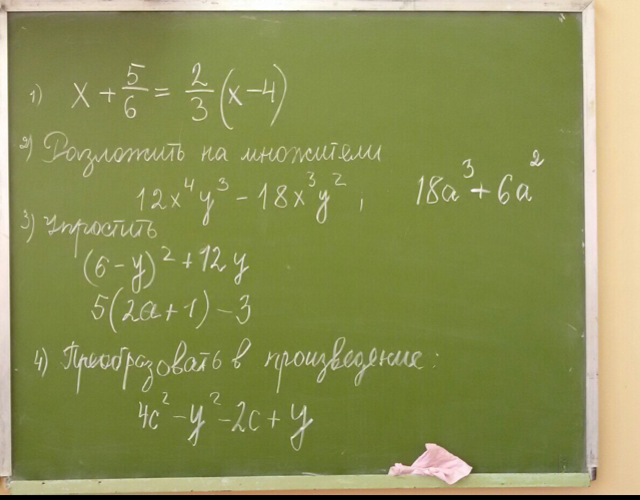 1) x + 5/6 = 2/3 (x – 4)
2) Разложить на множители
12x⁴y³ – 18x³y² , 18a³ + 6a²
3) Упростить
(6 – y)² + 12y
5(2a + 1) – 3
4) Преобразовать в произведение:
4c² – y² – 2c + y